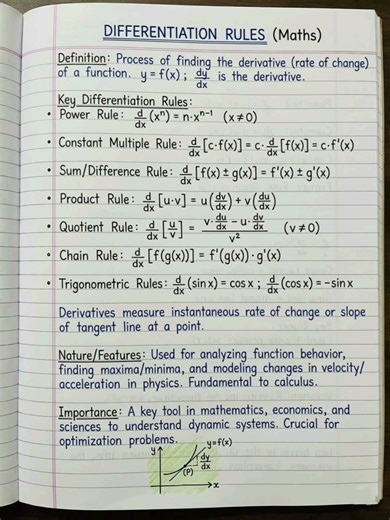 DIFFERENTIATION RULES (Maths)
Definition: Process of finding the derivative (rate of change)
of a function. y = f(x) ; dy/dx is the derivative.
Key Differentiation Rules:
• Power Rule: d/dx (xⁿ) = n·xⁿ⁻¹ (x≠0)
• Constant Multiple Rule: d/dx [c·f(x)] = c·d/dx [f(x)] = c·f'(x)
• Sum/Difference Rule: d/dx [f(x) ± g(x)] = f'(x) ± g'(x)
• Product Rule: d/dx [u·v] = u(dv/dx) + v(du/dx)
• Quotient Rule: d/dx [u/v] = (v·du/dx − u·dv/dx)/v² (v≠0)
• Chain Rule: d/dx [f(g(x))] = f'(g(x))·g'(x)
• Trigonometric Rules: d/dx (sin x) = cos x ; d/dx (cos x) = −sin x
Derivatives measure instantaneous rate of change or slope
of tangent line at a point.
Nature/Features: Used for analyzing function behavior,
finding maxima/minima, and modeling changes in velocity/
acceleration in physics. Fundamental to calculus.
Importance: A key tool in mathematics, economics, and
sciences to understand dynamic systems. Crucial for
optimization problems.
y
y=f(x)
dy/dx
(P)
x